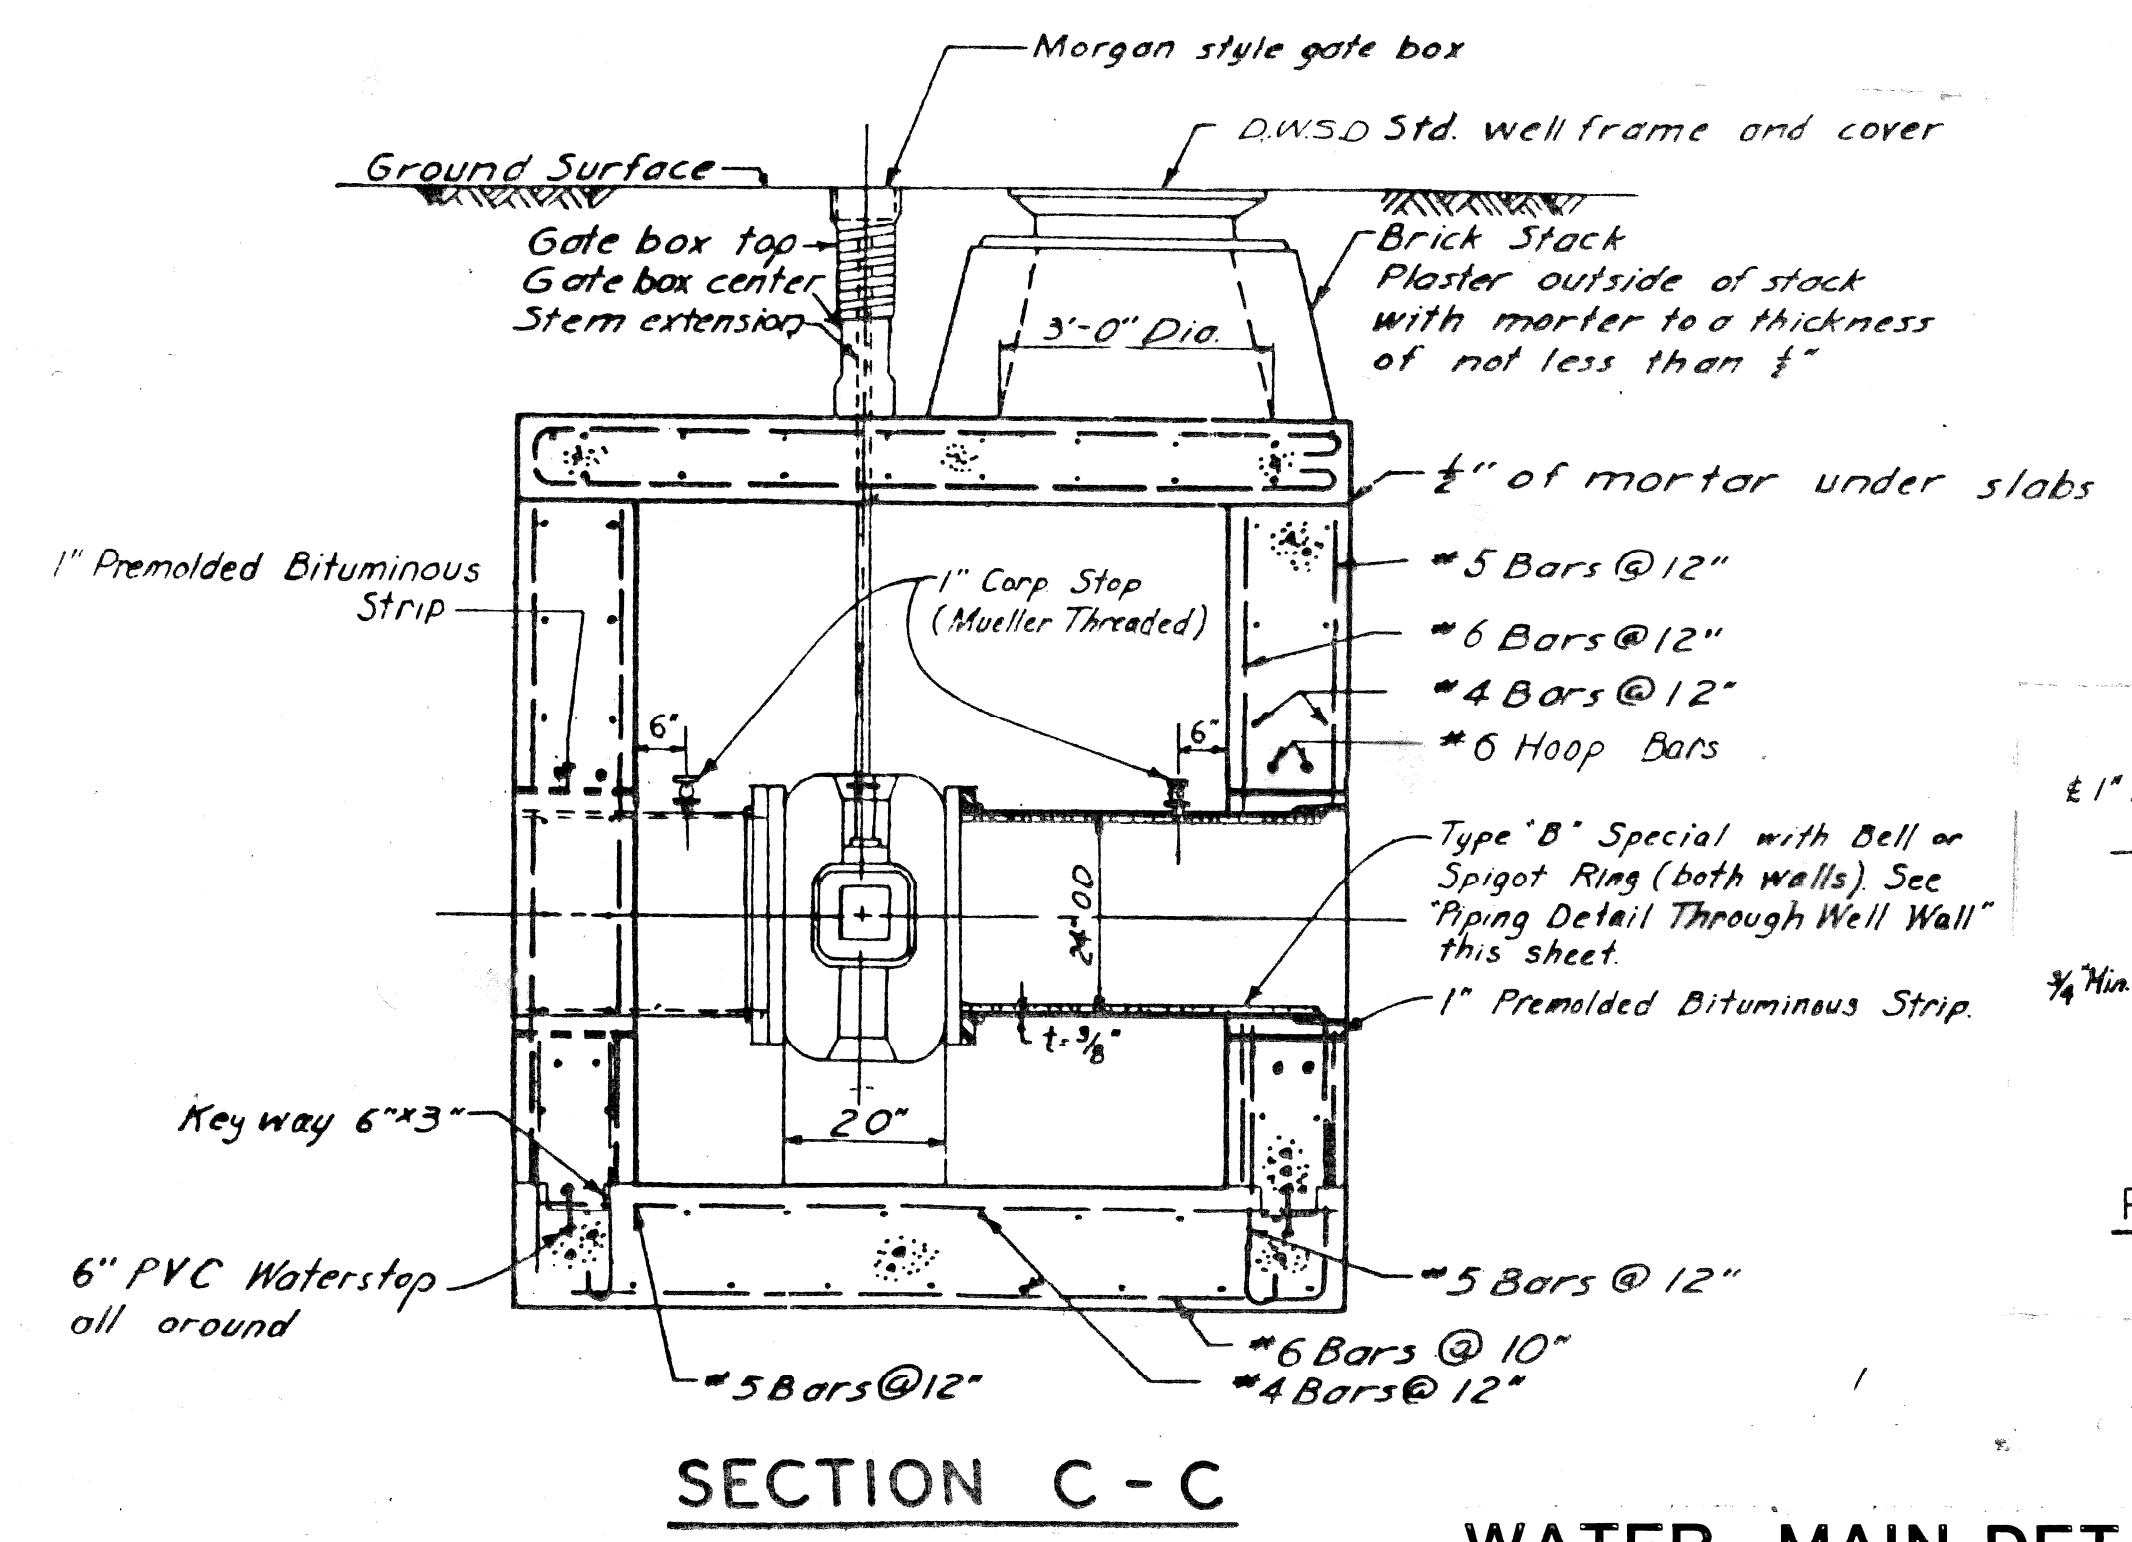 Morgan style gate box
D.W.S.D Std. well frame and cover
Ground Surface
Gate box top
Gate box center
Stem extension
Brick Stack
Plaster outside of stack
with morter to a thickness
of not less than ½"
3'-0" Dia.
½" of mortar under slabs
1" Premolded Bituminous
Strip
1" Corp. Stop
(Mueller Threaded)
#5 Bars @ 12"
#6 Bars @ 12"
#4 Bars @ 12"
#6 Hoop Bars
6"
6"
℄ 1"
Type "B" Special with Bell or
Spigot Ring (both walls). See
"Piping Detail Through Well Wall"
this sheet.
24" OD
¾" Min.
1" Premolded Bituminous Strip.
t=3/8"
Key way 6"x3"
20"
6" PVC Waterstop
all around
#5 Bars @ 12"
#6 Bars @ 10"
#5 Bars @ 12"
#4 Bars @ 12"
SECTION C-C
WATER MAIN DET